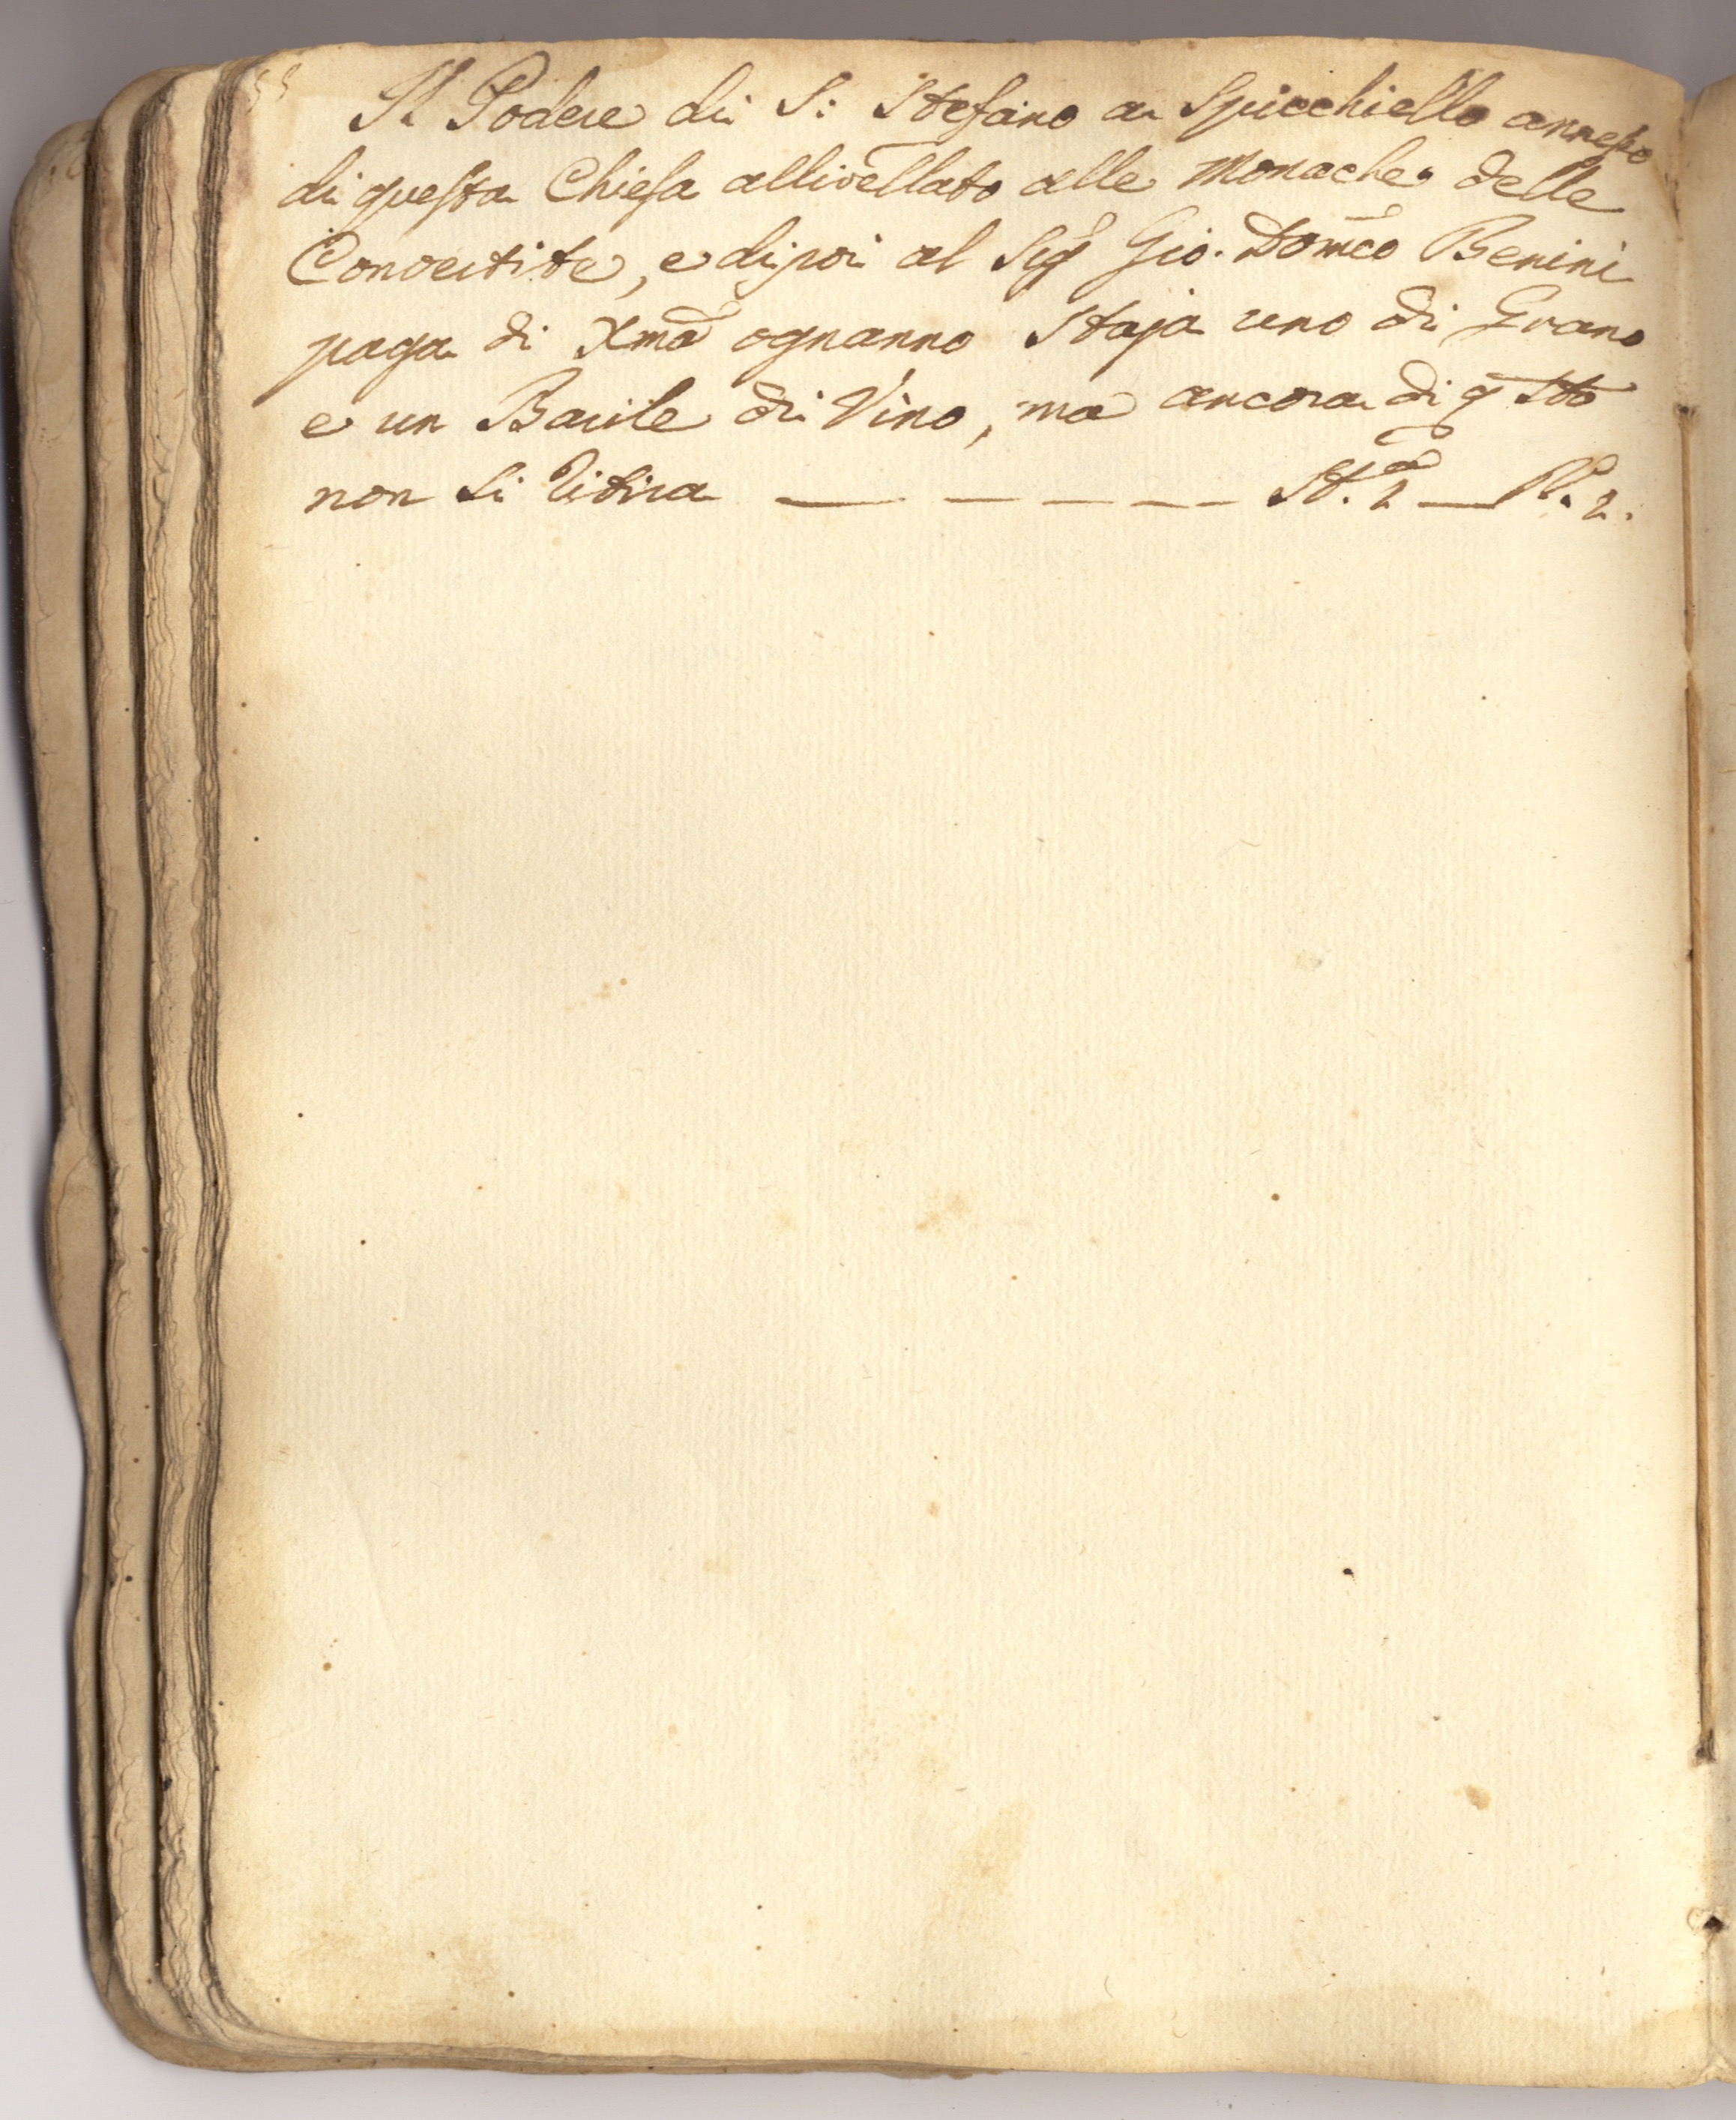 Il Podere di S: Stefano a Spicchiello annesso
di questa Chiesa allivellato alle Monache delle
Convertite, e dipoi al Sig.r Gio. Dom.co Benini
paga di Xma ognanno Staja uno di Grano
e un Barile di Vino, ma ancora di q.sto
non si ritira — — — — — St.a 1 — B. 1.